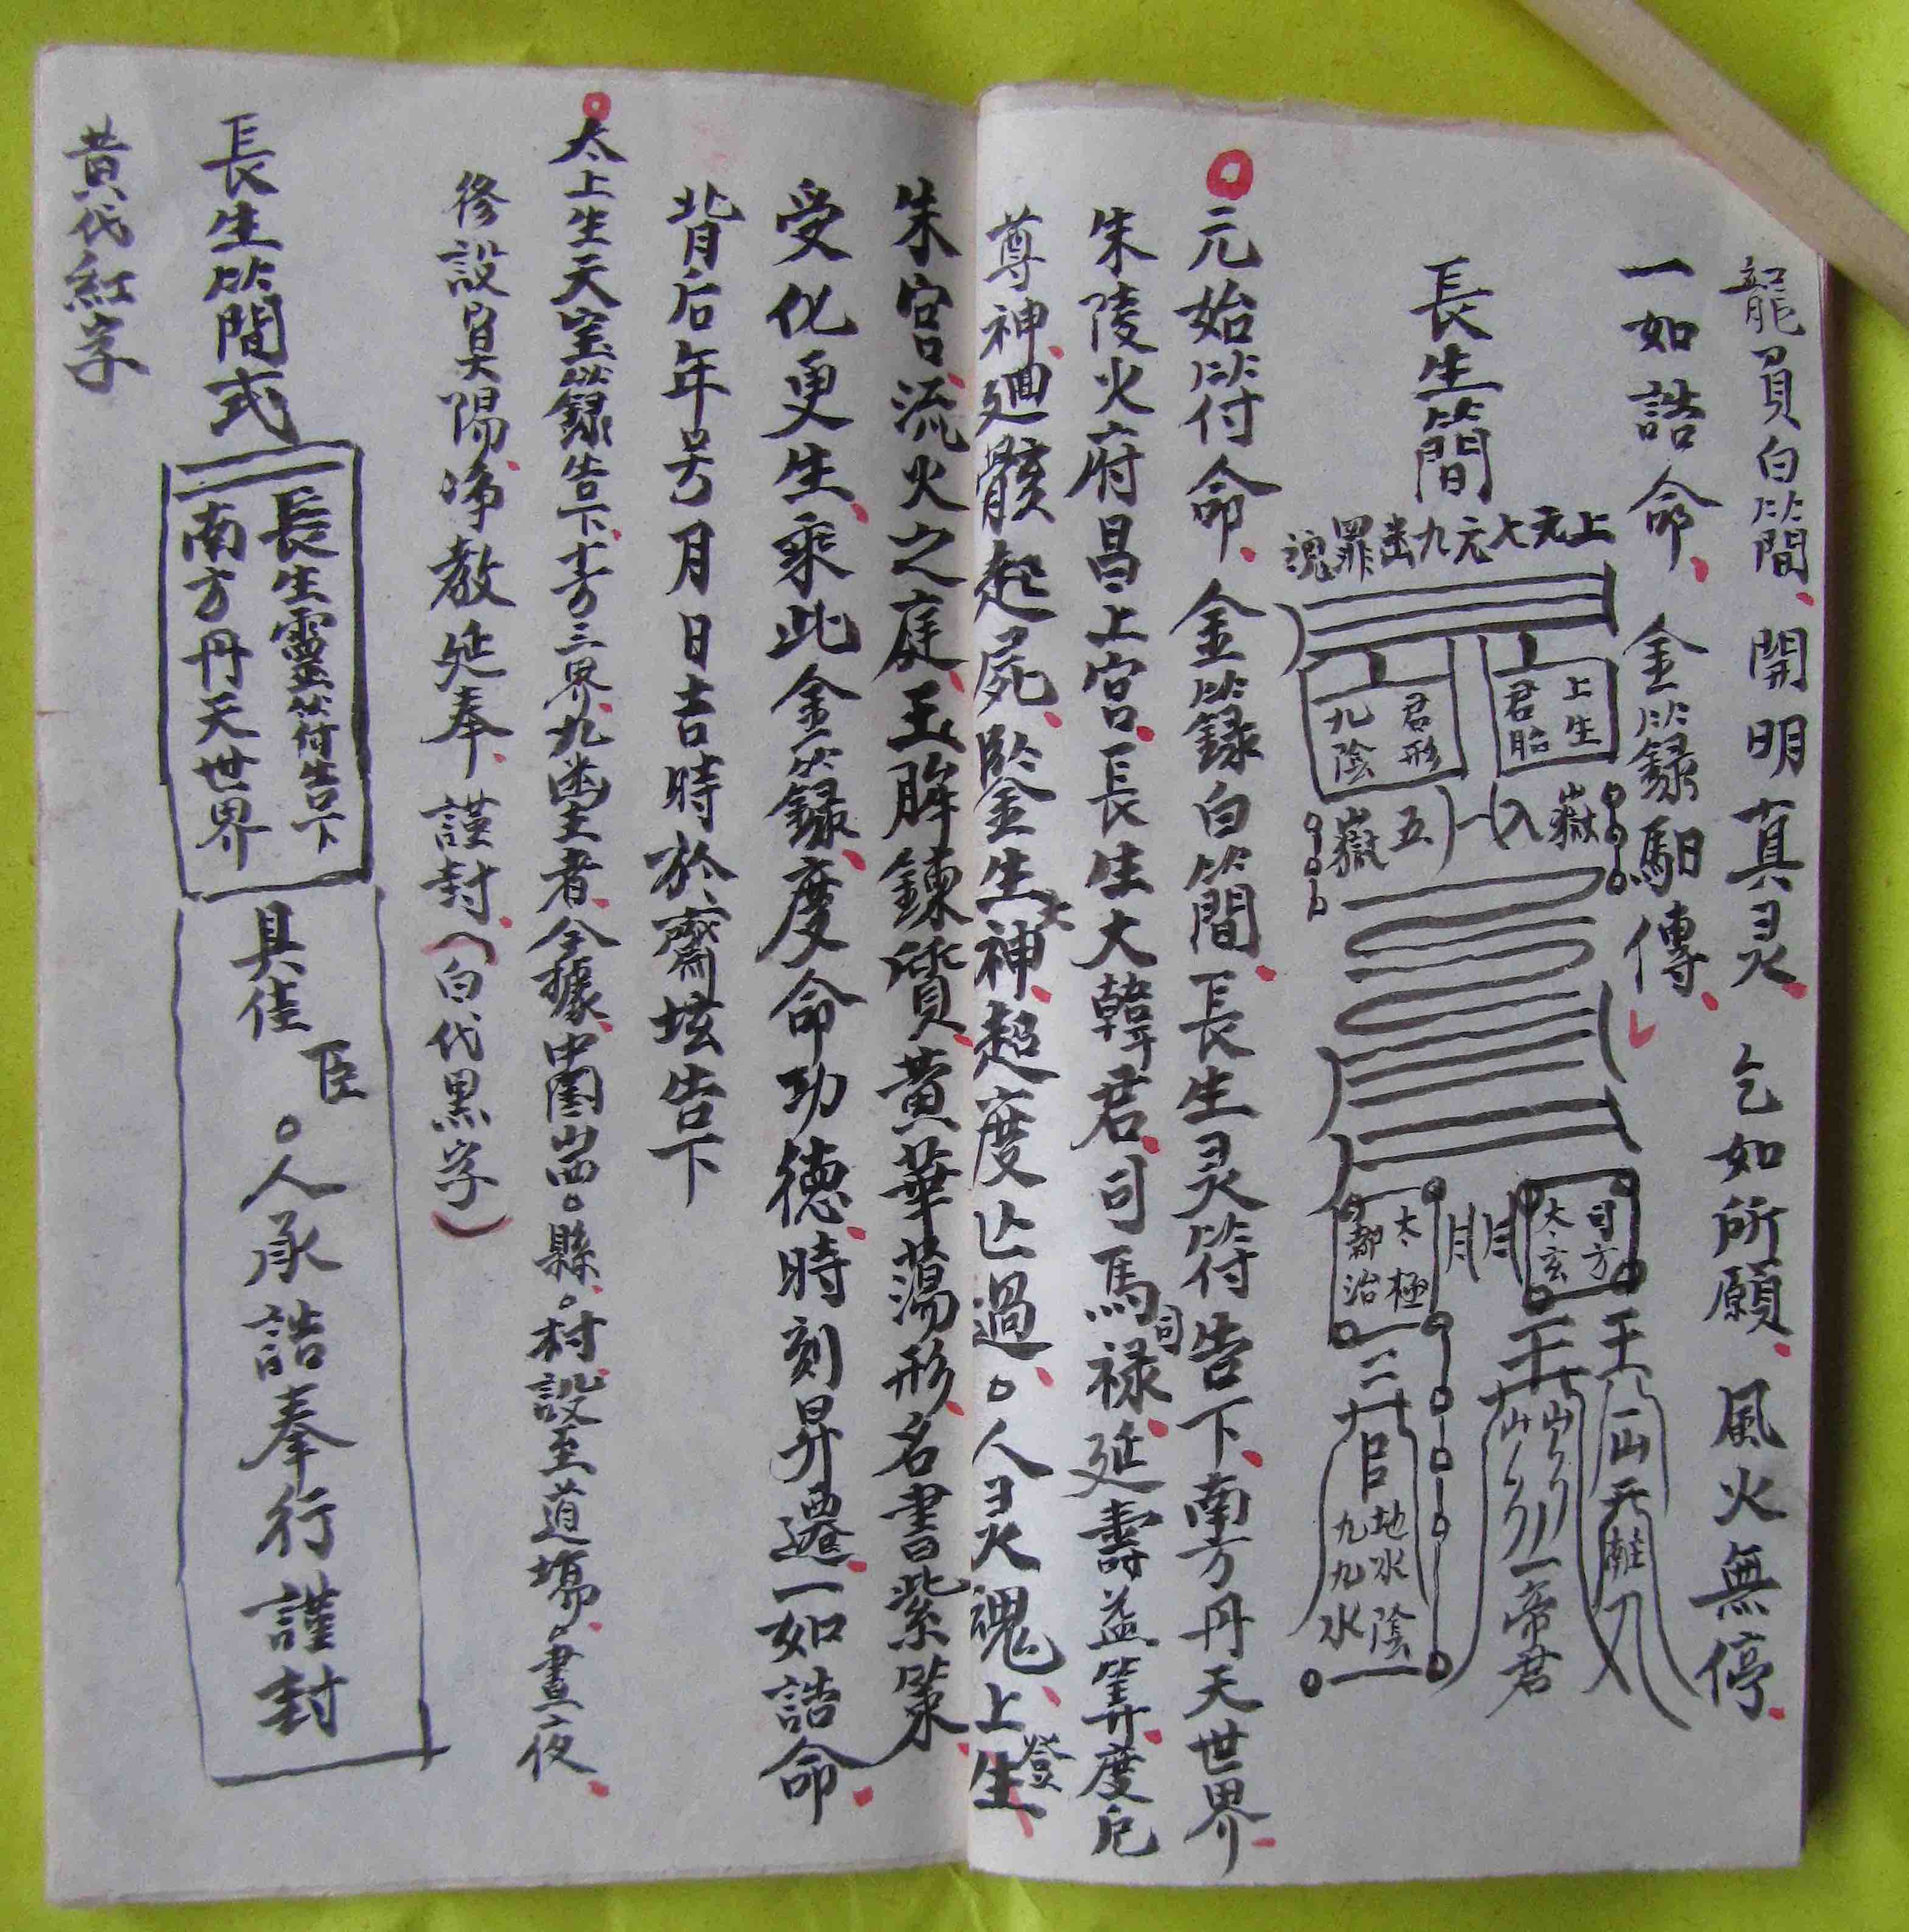 龍負白簡開明真灵乞如所願風火無停
一如誥命金籙馹傳
長生簡
上元七元九幽罪魂
上生君胎
君形九陰
五嶽
司方太玄
太極都治
帝君
地水陰九九水
元始符命金籙白簡長生灵符告下南方丹天世界
朱陵火府昌上宫長生大韓君司馬司禄延壽益筭度厄
尊神廻骸起屍監生大神超度亡過○人灵魂上登
朱宫流火之庭玉眸鍊質黄華蕩形名書紫策
受化更生乘此金籙度命功德時刻昇遷一如誥命
背后年号月日吉時於齋坛告下
太上生天宝籙告下十方三界九幽主者今據中國山西○縣○村設至道塲○晝夜
修設冥陽净教延奉謹封(白代黑字)
長生簡式
長生靈符告下
南方丹天世界
具佳
臣○人承誥奉行謹封
黄代紅字